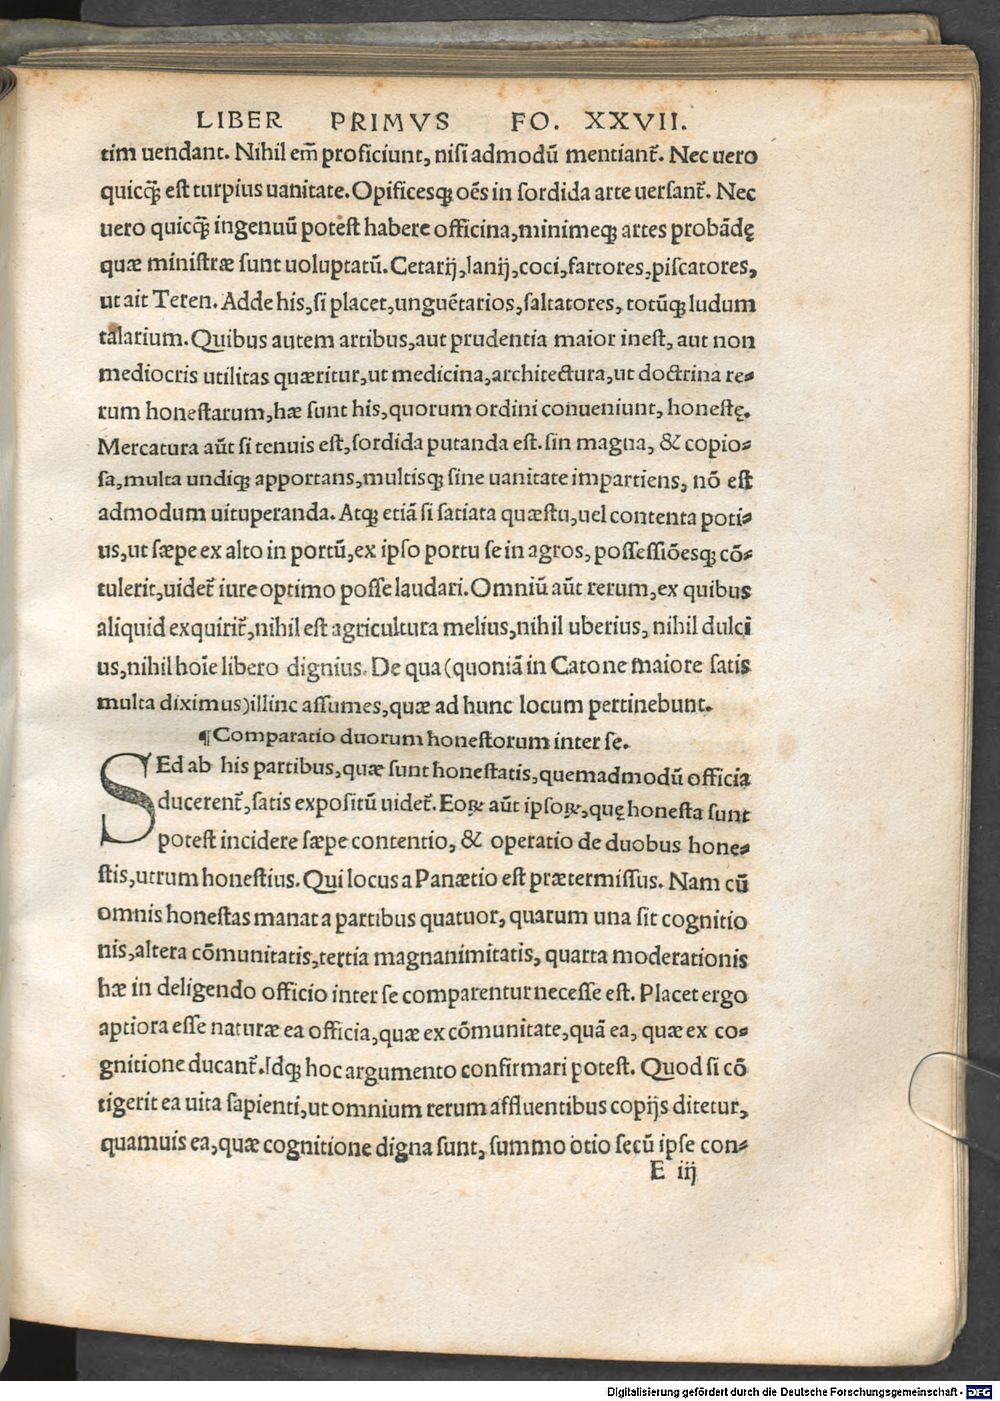 LIBER PRIMVS FO. XXVII.
tim uendant. Nihil em̃ proficiunt, nisi admodũ mentiant̃. Nec uero
quicq̃ꝫ est turpius uanitate. Opificesqꝫ oẽs in sordida arte uersant̃. Nec
uero quicq̃ꝫ ingenuũ potest habere officina, minimeqꝫ artes probãdę
quæ ministræ sunt uoluptatũ. Cetarij, lanij, coci, fartores, piscatores,
ut ait Teren. Adde his, si placet, unguẽtarios, saltatores, totũqꝫ ludum
talarium. Quibus autem artibus, aut prudentia maior inest, aut non
mediocris utilitas quæritur, ut medicina, architectura, ut doctrina re-
rum honestarum, hæ sunt his, quorum ordini conueniunt, honestę.
Mercatura aũt si tenuis est, sordida putanda est. sin magna, & copio-
sa, multa undiqꝫ apportans, multisqꝫ sine uanitate impartiens, nõ est
admodum uituperanda. Atqꝫ etiã si satiata quæstu, uel contenta poti-
us, ut sæpe ex alto in portũ, ex ipso portu se in agros, possessiõesqꝫ cõ-
tulerit, uidet̃ iure optimo posse laudari. Omniũ aũt rerum, ex quibus
aliquid exquirit̃, nihil est agricultura melius, nihil uberius, nihil dulci
us, nihil hoĩe libero dignius. De qua (quoniã in Catone maiore satis
multa diximus) illinc assumes, quæ ad hunc locum pertinebunt.
¶Comparatio duorum honestorum inter se.
SEd ab his partibus, quæ sunt honestatis, quemadmodũ officia
ducerent̃, satis expositũ uidet̃. Eoꝝ aũt ipsoꝝ, quę honesta sunt
potest incidere sæpe contentio, & operatio de duobus hone-
stis, utrum honestius. Qui locus a Panætio est prætermissus. Nam cũ
omnis honestas manat a partibus quatuor, quarum una sit cognitio
nis, altera cõmunitatis, tertia magnanimitatis, quarta moderationis
hæ in deligendo officio inter se comparentur necesse est. Placet ergo
aptiora esse naturæ ea officia, quæ ex cõmunitate, quã ea, quæ ex co-
gnitione ducant̃. Idqꝫ hoc argumento confirmari potest. Quod si cõ
tigerit ea uita sapienti, ut omnium rerum affluentibus copijs ditetur,
quamuis ea, quæ cognitione digna sunt, summo otio secũ ipse con-
E iij
Digitalisierung gefördert durch die Deutsche Forschungsgemeinschaft - DFG